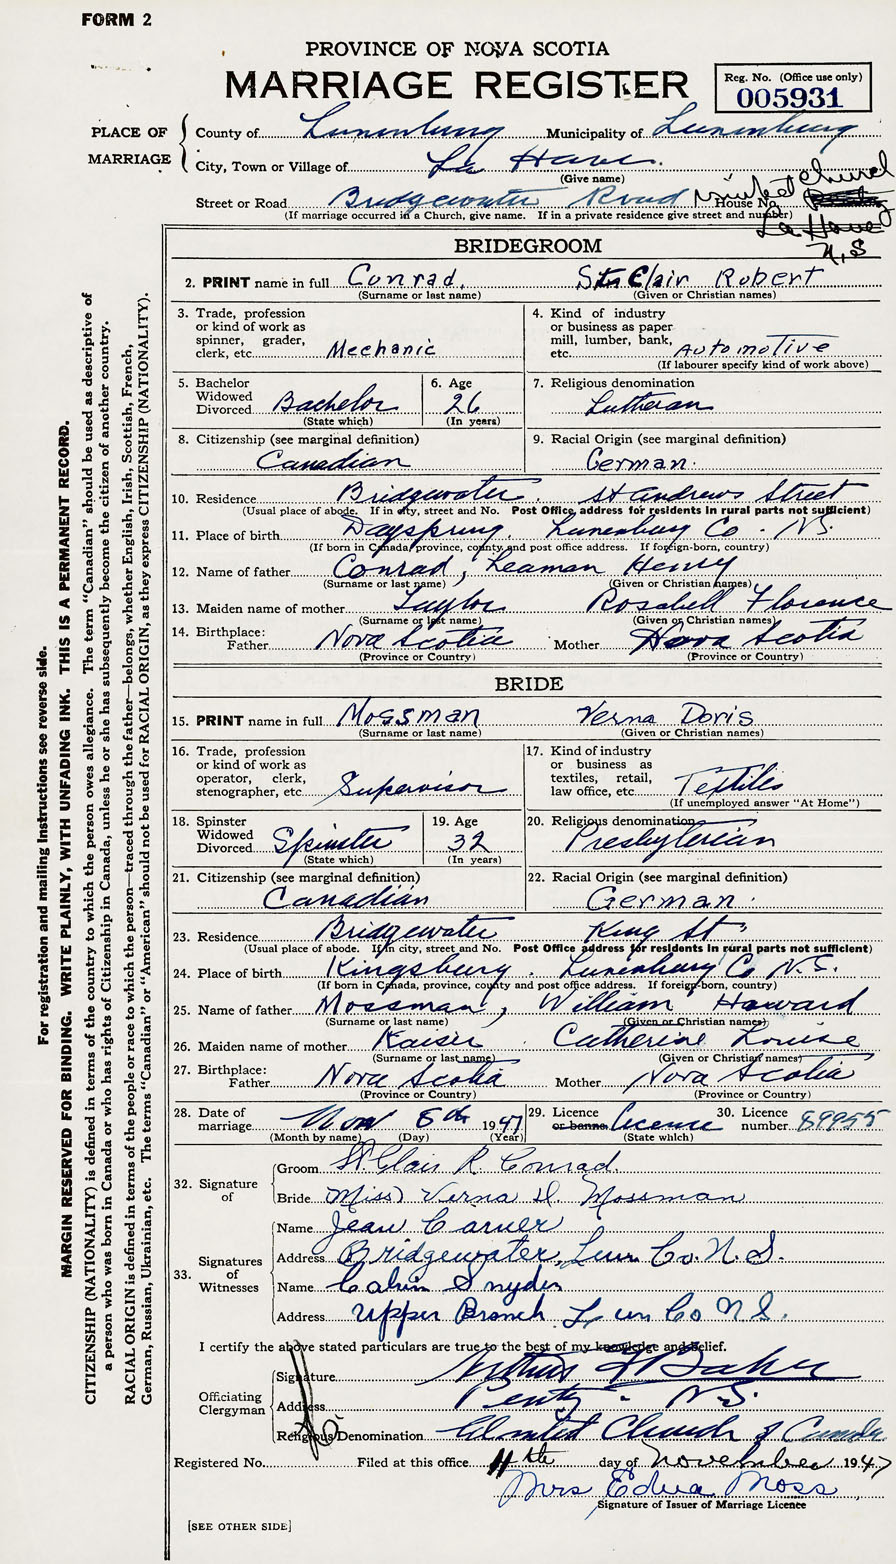 FORM 2
PROVINCE OF NOVA SCOTIA
MARRIAGE REGISTER
Reg. No. (Office use only)
005931
PLACE OF MARRIAGE
County of Lunenburg Municipality of Lunenburg
City, Town or Village of La Have.
(Give name)
United Church
Street or Road Bridgewater Road House No.
(If marriage occurred in a Church, give name. If in a private residence give street and number)
La Have
N,S
BRIDEGROOM
2. PRINT name in full Conrad, St Clair Robert
(Surname or last name) (Given or Christian names)
3. Trade, profession or kind of work as spinner, grader, clerk, etc. Mechanic
4. Kind of industry or business as paper mill, lumber, bank, etc. Automotive
(If labourer specify kind of work above)
5. Bachelor Widowed Divorced Bachelor
(State which)
6. Age 26
(In years)
7. Religious denomination Lutheran
8. Citizenship (see marginal definition) Canadian
9. Racial Origin (see marginal definition) German.
10. Residence Bridgewater. St Andrews Street
(Usual place of abode. If in city, street and No. Post Office address for residents in rural parts not sufficient)
11. Place of birth Dayspring. Lunenburg Co. N.S.
(If born in Canada, province, county and post office address. If foreign-born, country)
12. Name of father Conrad, Leaman Henry
(Surname or last name) (Given or Christian names)
13. Maiden name of mother Taylor Rosabell Florence
(Surname or last name) (Given or Christian names)
14. Birthplace: Father Nova Scotia Mother Nova Scotia
(Province or Country) (Province or Country)
BRIDE
15. PRINT name in full Mossman Verna Doris
(Surname or last name) (Given or Christian names)
16. Trade, profession or kind of work as operator, clerk, stenographer, etc. Supervisor
17. Kind of industry or business as textiles, retail, law office, etc. Textiles
(If unemployed answer "At Home")
18. Spinster Widowed Divorced Spinster
(State which)
19. Age 32
(In years)
20. Religious denomination Presbyterian
21. Citizenship (see marginal definition) Canadian
22. Racial Origin (see marginal definition) German.
23. Residence Bridgewater King St.
(Usual place of abode. If in city, street and No. Post Office address for residents in rural parts not sufficient)
24. Place of birth Kingsburg. Lunenburg Co N.S.
(If born in Canada, province, county and post office address. If foreign-born, country)
25. Name of father Mossman, William Howard
(Surname or last name) (Given or Christian names)
26. Maiden name of mother Kaiser Catherine Louise
(Surname or last name) (Given or Christian names)
27. Birthplace: Father Nova Scotia Mother Nova Scotia
(Province or Country) (Province or Country)
28. Date of marriage Nov 8th 1947
(Month by name) (Day) (Year)
29. Licence or banns licence
(State which)
30. Licence number 89955
32. Signature of
Groom St Clair R. Conrad.
Bride Miss Verna D. Mossman
33. Signatures of Witnesses
Name Jean Carver
Address Bridgewater, Lun Co. N.S.
Name Calvin Snyder
Address Upper Branch Lun Co N S.
I certify the above stated particulars are true to the best of my knowledge and belief.
Officiating Clergyman
Signature Baker
Address N.S.
Religious Denomination United Church of Canada
Registered No. Filed at this office 11th day of November 1947
Mrs Edna Moss
Signature of Issuer of Marriage Licence
[SEE OTHER SIDE]
For registration and mailing instructions see reverse side.
MARGIN RESERVED FOR BINDING. WRITE PLAINLY, WITH UNFADING INK. THIS IS A PERMANENT RECORD.
CITIZENSHIP (NATIONALITY) is defined in terms of the country to which the person owes allegiance. The term "Canadian" should be used as descriptive of
a person who was born in Canada or who has rights of Citizenship in Canada, unless he or she has subsequently become the citizen of another country.
RACIAL ORIGIN is defined in terms of the people or race to which the person—traced through the father—belongs, whether English, Irish, Scottish, French,
German, Russian, Ukrainian, etc. The terms "Canadian" or "American" should not be used for RACIAL ORIGIN, as they express CITIZENSHIP (NATIONALITY).